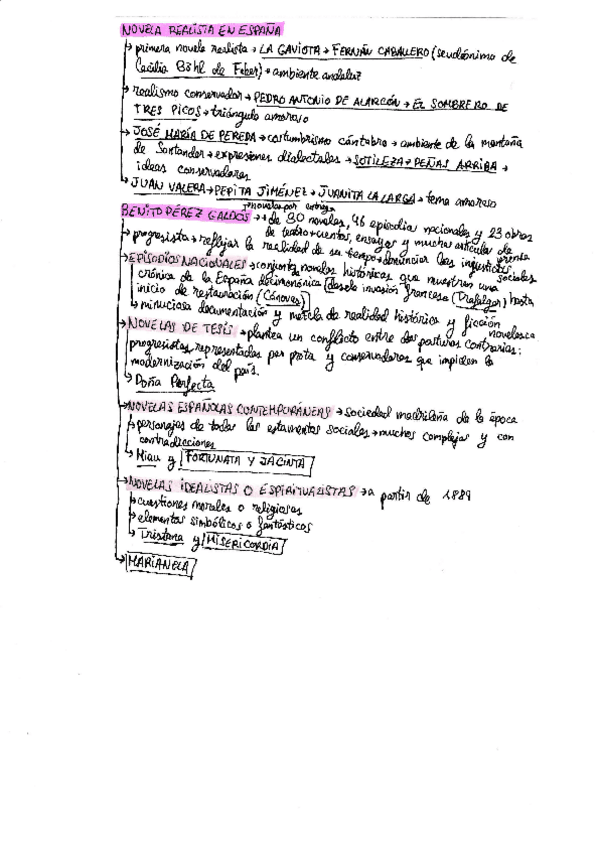 NOVELA REALISTA EN ESPAÑA
→ primera novela realista → LA GAVIOTA → FERNÁN CABALLERO (seudónimo de
Cecilia Böhl de Faber) → ambiente andaluz
→ realismo conservador → PEDRO ANTONIO DE ALARCÓN → EL SOMBRERO DE
TRES PICOS → triángulo amoroso
→ JOSÉ MARÍA DE PEREDA → costumbrismo cántabro → ambiente de la montaña
de Santander → expresiones dialectales → SOTILEZA → PEÑAS ARRIBA →
ideas conservadoras
→ JUAN VALERA → PEPITA JIMÉNEZ → JUANITA LA LARGA → tema amoroso
→ novelas por entregas
BENITO PÉREZ GALDÓS → + de 30 novelas, 46 episodios nacionales y 23 obras
de teatro + cuentos, ensayos y muchos artículos de prensa
→ progresista → reflejar la realidad de su tiempo + denunciar las injusticias sociales
→ EPISODIOS NACIONALES → conjunto novelas históricas que muestran una
crónica de la España decimonónica (desde invasión francesa (Trafalgar) hasta
inicio de restauración (Cánovas)
→ minuciosa documentación y mezcla de realidad histórica y ficción novelesca
→ NOVELAS DE TESIS → plantea un conflicto entre dos posturas contrarias:
progresistas representadas por prota y conservadores que impiden la
modernización del país.
→ Doña Perfecta
→ NOVELAS ESPAÑOLAS CONTEMPORÁNEAS → sociedad madrileña de la época
→ personajes de todos los estamentos sociales → muchos complejos y con
contradicciones
→ Miau y FORTUNATA Y JACINTA
→ NOVELAS IDEALISTAS O ESPIRITUALISTAS → a partir de 1889
→ cuestiones morales o religiosas
→ elementos simbólicos o fantásticos
→ Tristana y MISERICORDIA
→ MARIANELA